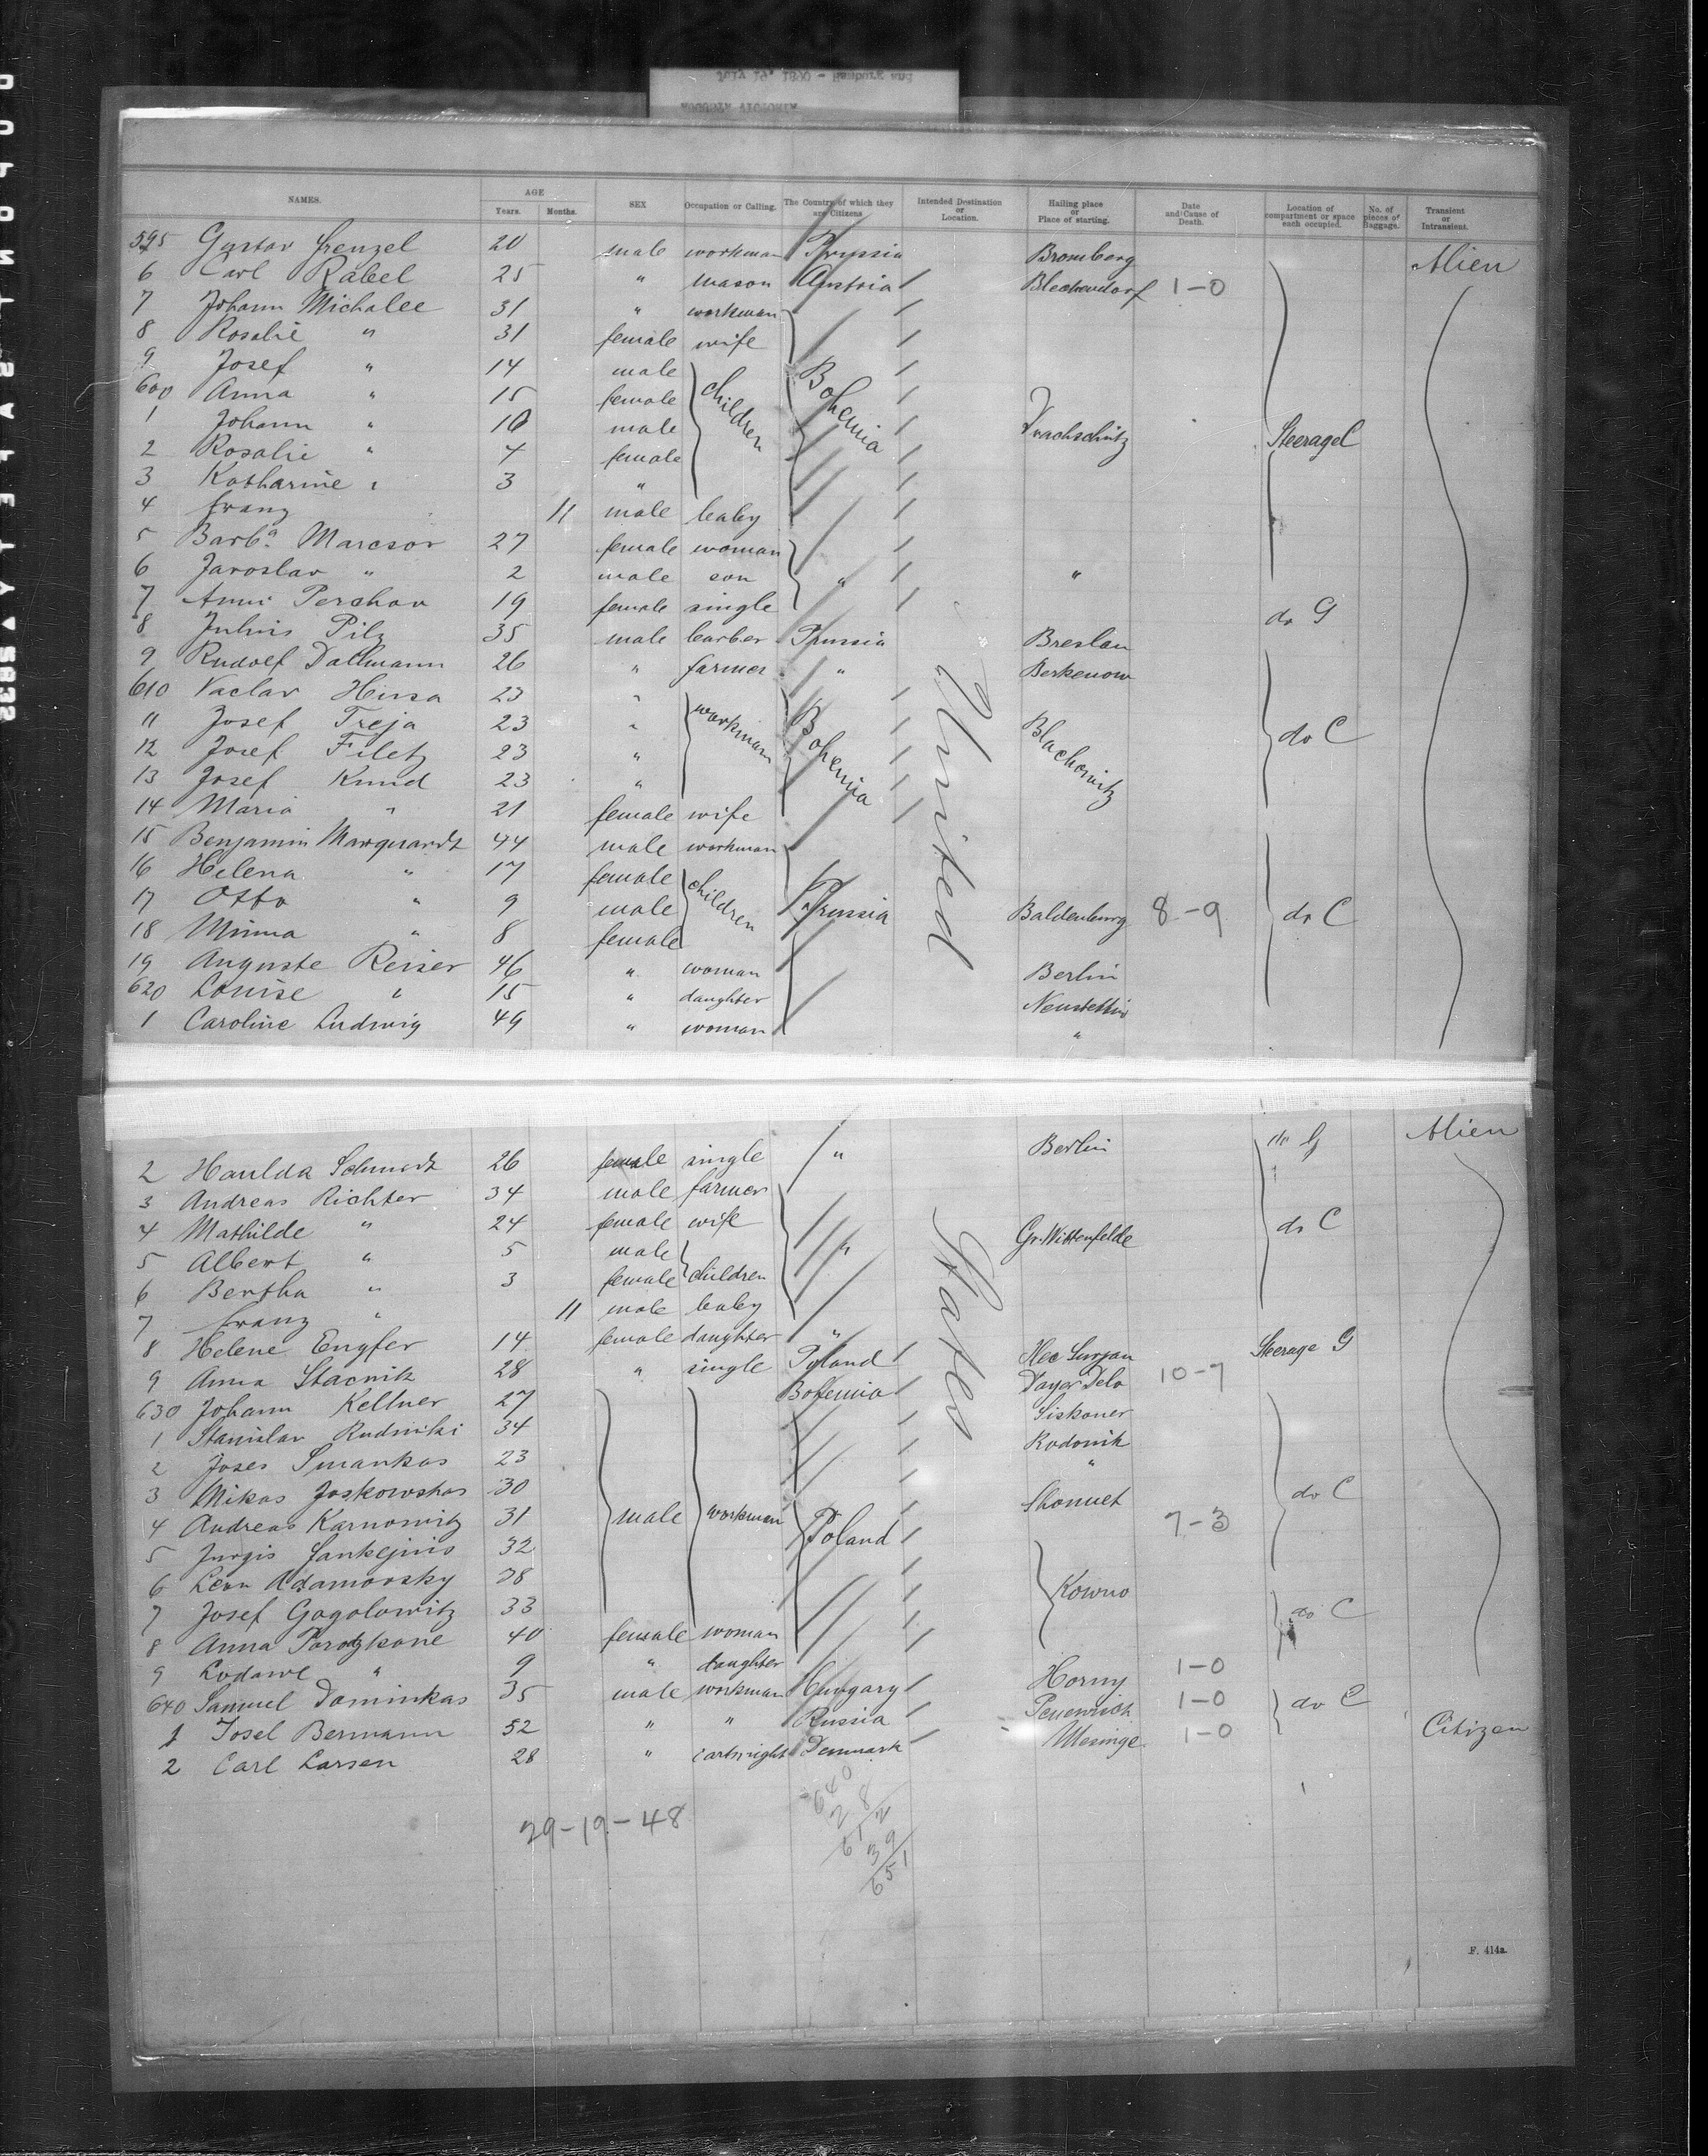 NAMES. AGE Years. Months. SEX Occupation or Calling. The Country of which they are Citizens Intended Destination or Location. Hailing place or Place of starting. Date and Cause of Death. Location of compartment or space each occupied. No. of pieces of Baggage. Transient or Intransient.
595 Gustav Frenzel 20 male workman Prussia Bromberg Alien
6 Carl Rabel 25 " mason Austria Blechendorf 1-0
7 Johann Michalee 31 " workman
8 Rosalie " 31 female wife
9 Josef " 14 male
600 Anna " 15 female children Bohemia
1 Johann " 10 male Steerage C
2 Rosalie " 4 female
3 Katharine " 3 "
4 Franz 11 male baby
5 Barba. Marcsor 27 female woman
6 Jaroslav " 2 male son " "
7 Anni Perchov 19 female single do G
8 Julius Pilz 35 male barber Prussia Breslau
9 Rudolf Dallmann 26 " farmer " Berkenow
610 Vaclav Hirsa 23 "
11 Josef Treja 23 " workman Bohemia Blachowitz do C
12 Josef Filetz 23 "
13 Josef Kunid 23 "
14 Maria " 21 female wife
15 Benjamin Marquardt 44 male workman United
16 Helena " 17 female
17 Otto " 9 male children Prussia Baldenburg 8-9 do C
18 Minna " 8 female
19 Auguste Reiser 46 " woman Berlin
620 Louise " 15 " daughter Neustettin
1 Caroline Ludwig 49 " woman "
2 Haulda Schmidt 26 female single " Berlin do G Alien
3 Andreas Richter 34 male farmer
4 Mathilde " 24 female wife " Gr. Wittenfelde do C
5 Albert " 5 male
6 Bertha " 3 female children States
7 Franz " 11 male baby
8 Helene Engfer 14 female daughter " Steerage G
9 Anna Stacnik 28 " single Poland 10-7
630 Johann Kellner 27 Bohemia
1 Stanislav Rudniki 34 Rodonik
2 Joses Smankas 23 "
3 Mikas Joskowskas 30 do C
4 Andreas Karnowitz 31 male workman Poland 7-3
5 Jurgis Jankejnis 32
6 Leon Adamovsky 28 Kowno
7 Josef Gogolowitz 33 do C
8 Anna Porotzkane 40 female woman
9 Lodawe " 9 " daughter Horny 1-0
640 Samuel Dominkas 35 male workman Hungary 1-0 do C
1 Josel Bermann 52 " " Russia 1-0 Citizen
2 Carl Larsen 28 " cartwright Denmark
29-19-48
640
28
612
39
651
F. 414a.